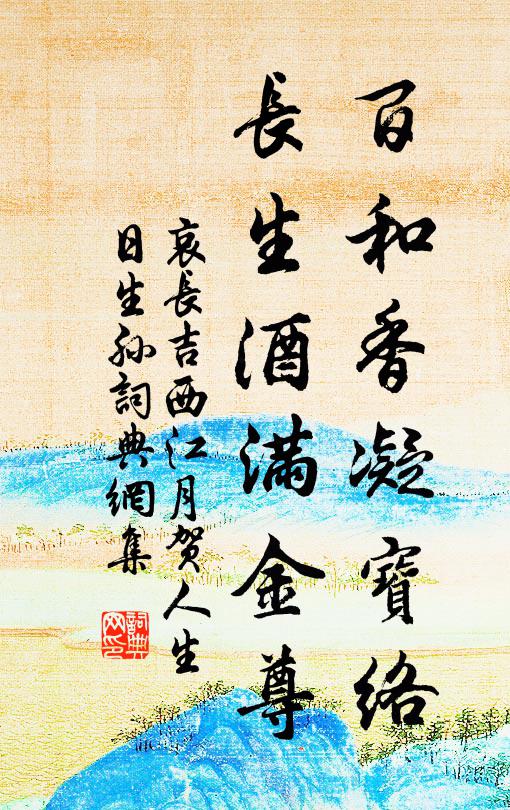 百和香凝寶絡
長生酒滿金尊
哀長吉西江月賀人生
日生孫詞典網集
詞典
网印